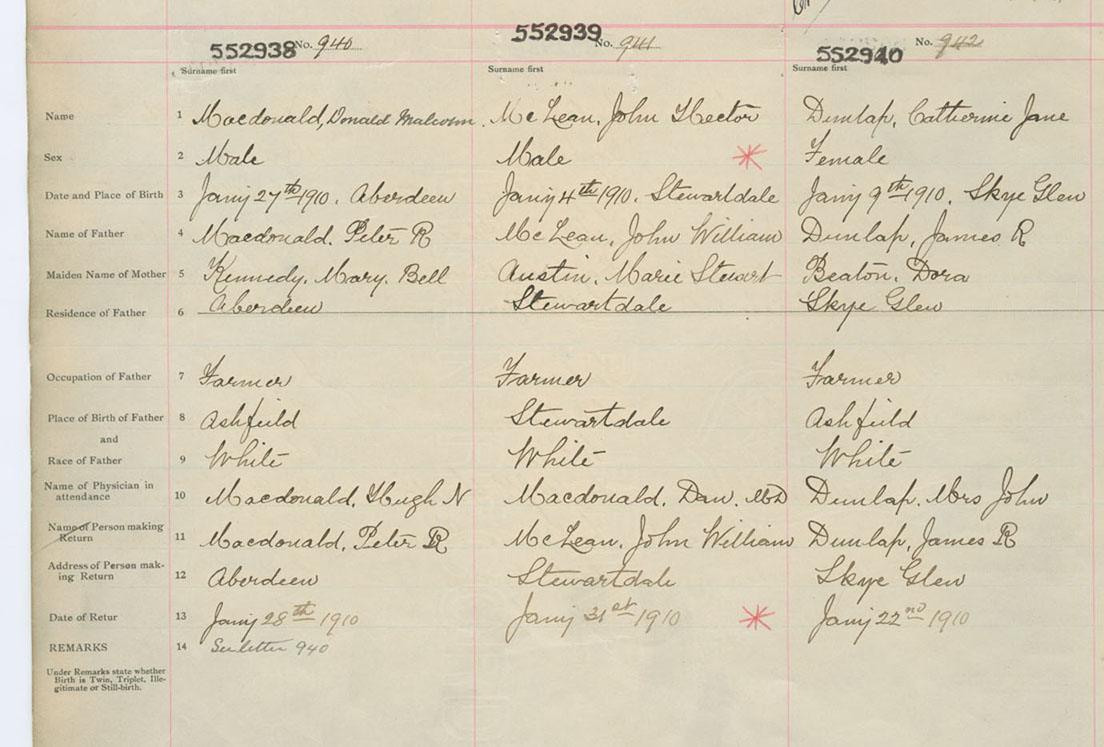 552938 No. 940 552939 No. 941 552940 No. 942
Surname first Surname first Surname first
Name 1 Macdonald, Donald Malcolm. McLean, John Hector Dunlap, Catherine Jane
Sex 2 Male Male Female
Date and Place of Birth 3 Jany 27th 1910. Aberdeen Jany 4th 1910. Stewartdale Jany 9th 1910. Skye Glen
Name of Father 4 Macdonald. Peter R McLean, John William Dunlap, James R
Maiden Name of Mother 5 Kennedy, Mary. Bell Austin. Marie Stewart Beaton. Dora
Residence of Father 6 Aberdeen Stewartdale Skye Glen
Occupation of Father 7 Farmer Farmer Farmer
Place of Birth of Father 8 Ashfield Stewartdale Ashfield
and
Race of Father 9 White White White
Name of Physician in
attendance 10 Macdonald, Hugh N Macdonald. Dan. MD Dunlap. Mrs John
Name of Person making
Return 11 Macdonald, Peter R McLean. John William Dunlap, James R
Address of Person mak-
ing Return 12 Aberdeen Stewartdale Skye Glen
Date of Retur 13 Jany 28th 1910 Jany 31st 1910 Jany 22nd 1910
REMARKS 14 See letter 940
Under Remarks state whether
Birth is Twin, Triplet, Ille-
gitimate or Still-birth.